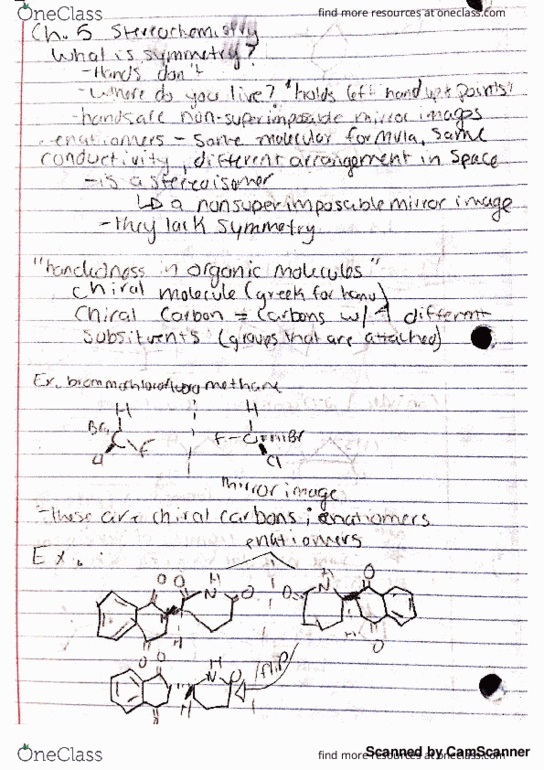 OneClass
find more resources at oneclass.com
OneClass
find more resources at oneclass.com
Ch. 5 Stereochemistry
What is symmetry?
-Hands don't
-Where do you live? *holds left hand up + points*
-hands are non-superimposable mirror images
enatiomers - same molecular formula, same
conductivity, different arrangement in space
-is a stereoisomer
↳ a nonsuperimposable mirror image
-they lack symmetry
"handedness in organic molecules"
chiral molecule (greek for hand)
Chiral Carbon = carbons w/ 4 different
subsituents (groups that are attached)
Ex. bromochlorofluoro methane
H
H
Br
C
F
Cl
F-C
Br
Cl
mirror image
-These are chiral carbons; enatiomers
enatiomers
Ex.
O
O
H
N
O
O
H
N
O
H
H
O
O
O
H
N
O
flip
H
OneClass
find more resources at oneclass.com
Scanned by CamScanner